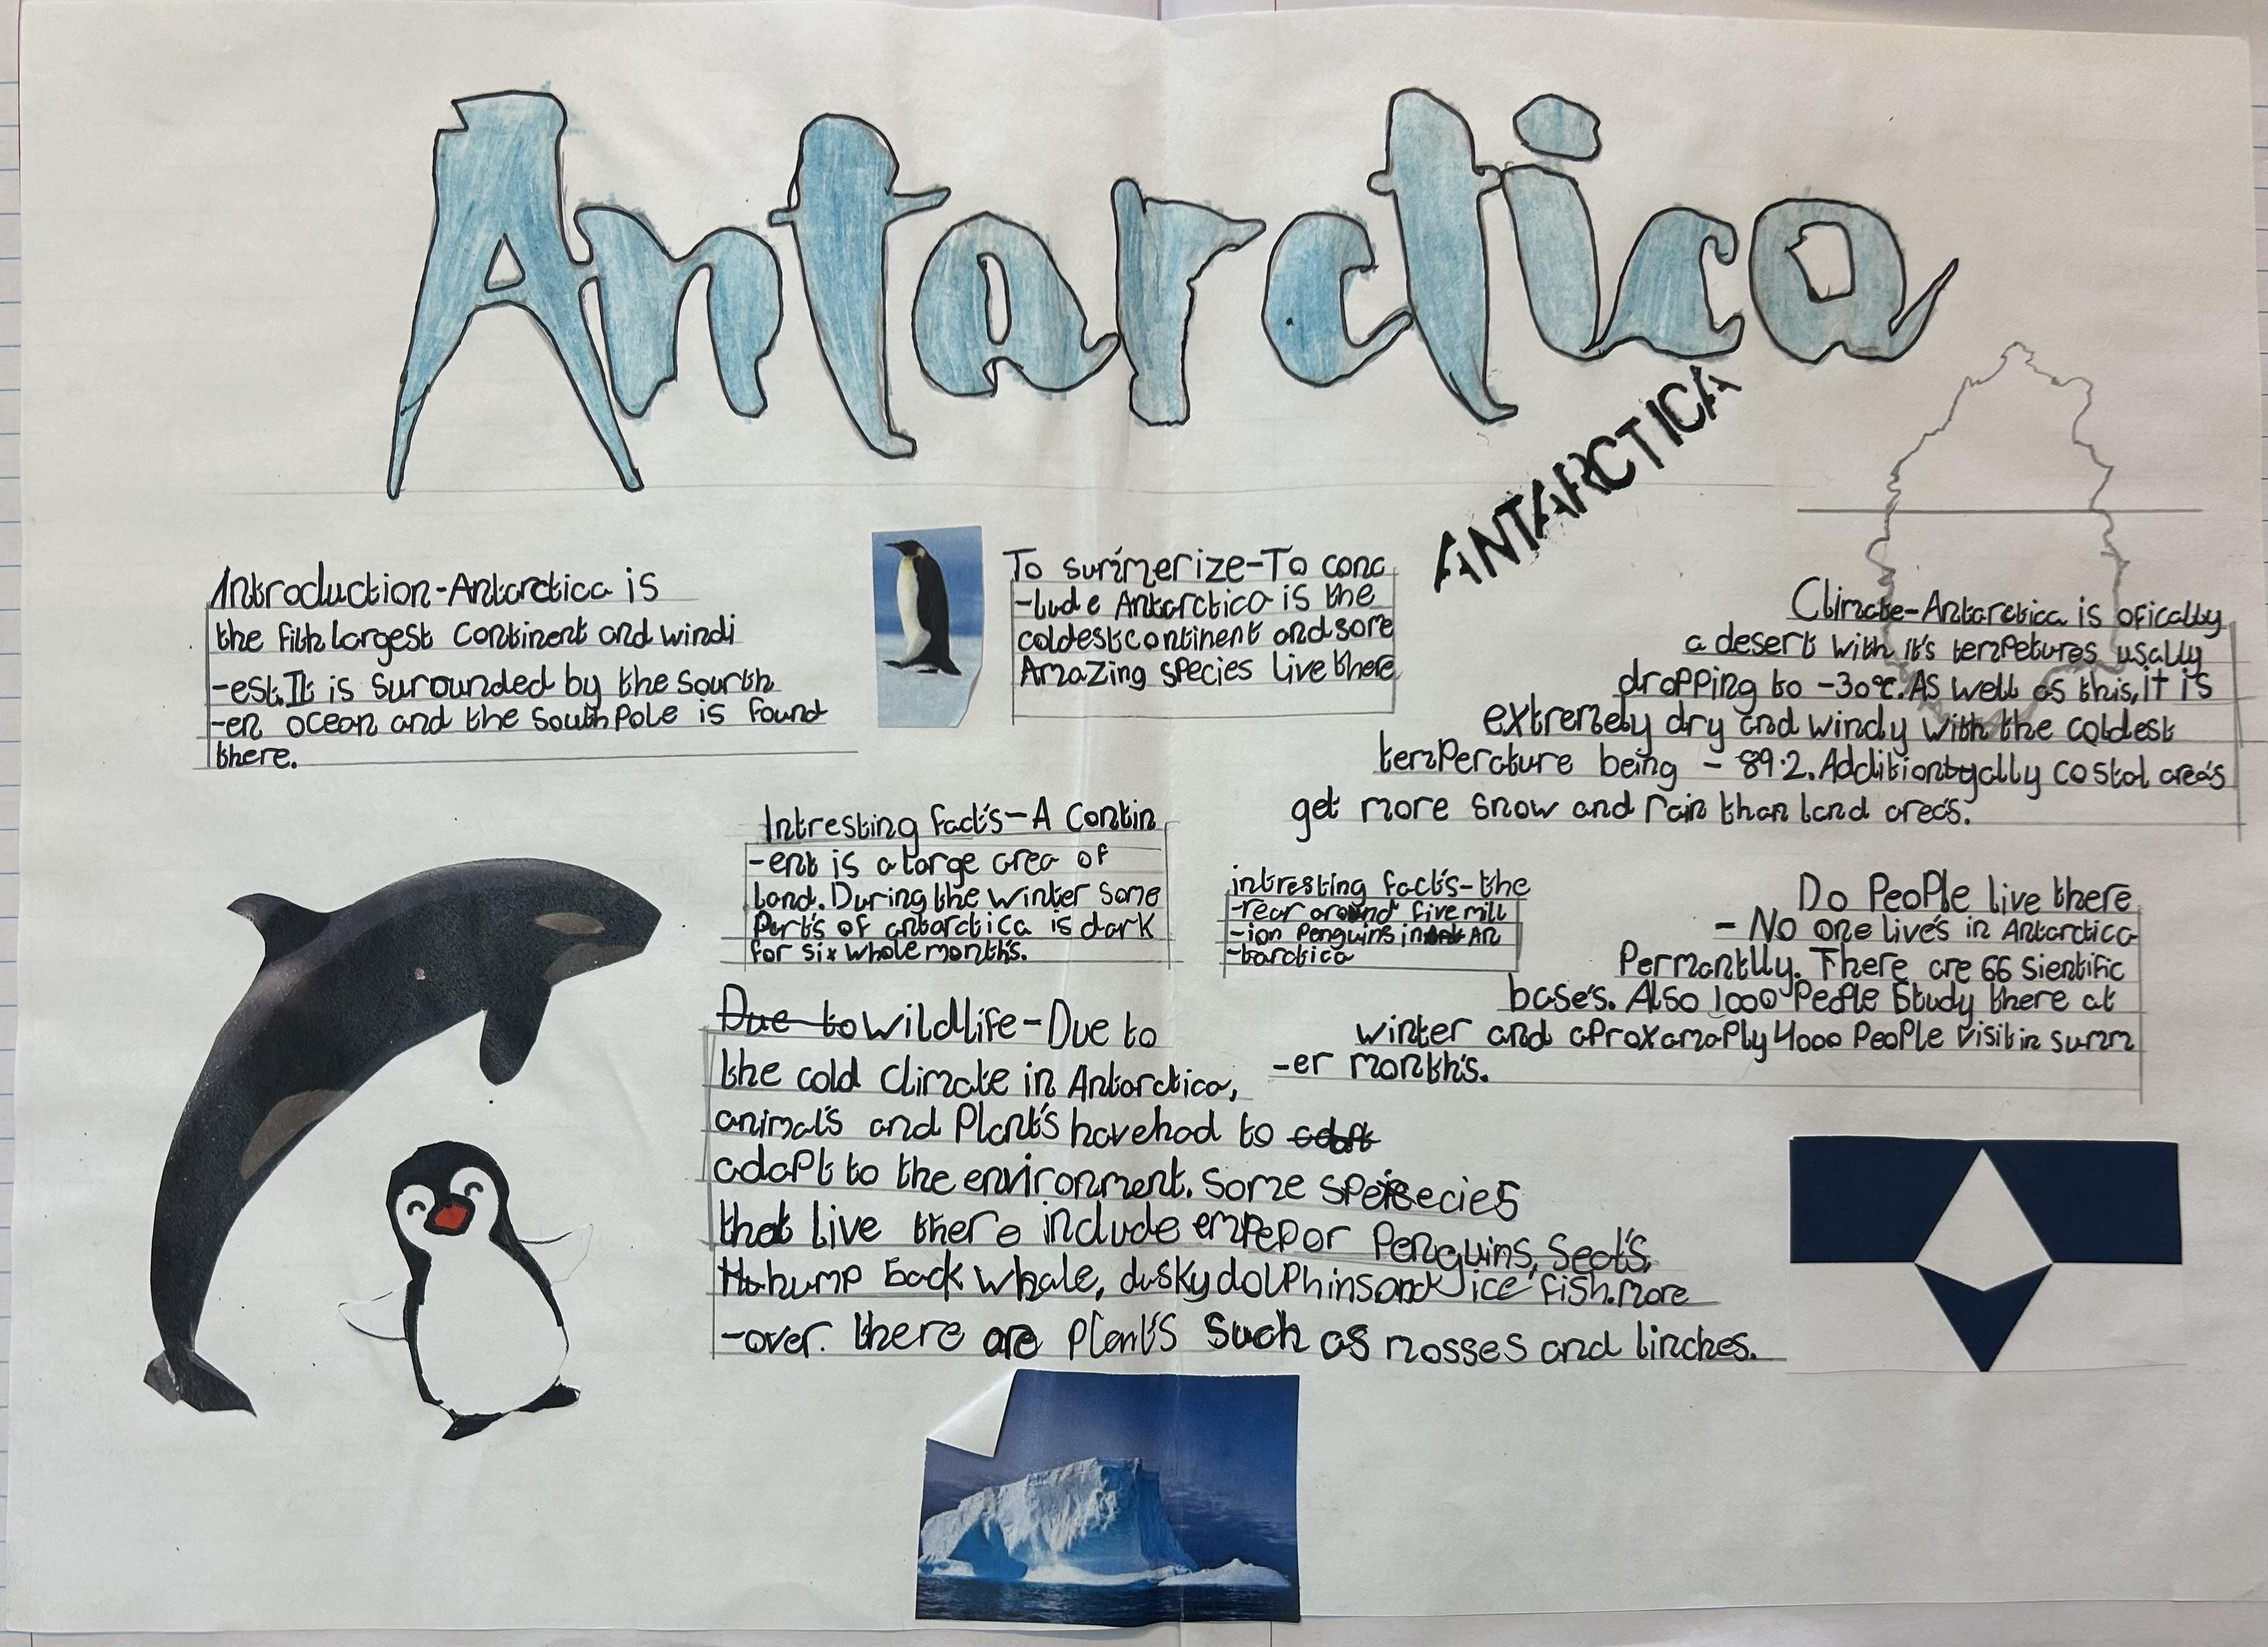 Antarctica
ANTARCTICA
Introduction-Antarctica is
the fith largest Continent and windi
-est. It is surounded by the South
-en ocean and the South Pole is found
there.
To summerize-To conc
-lude Antarctica is the
coldest continent and some
Amazing species live there
Climate-Antarctica is ofically
a desert with it's tempetures usally
dropping to -30°c. As well as this, it is
extremely dry and windy with the coldest
temperature being - 89.2. Additionally costal area's
get more snow and rain than land area's.
Intresting fact's-A Contin
-ent is a large area of
land. During the winter some
Part's of antarctica is dark
for six whole month's.
intresting fact's-the
-rear around five mill
-ion Penguins in An
-tarctica
Do People live there
- No one live's in Antarctica
Permantlly. There are 66 sientific
base's. Also 1000 People study there at
winter and aproxamaply 4000 People visit in summ
-er month's.
Due to wildlife-Due to
the cold climate in Antarctica,
animal's and Plant's have had to adapt
adapt to the environment. Some species
that live there include emperor Penguins, Seal's,
hump back whale, dusky dolphins and ice fish. more
-over. there are plant's such as mosses and linches.